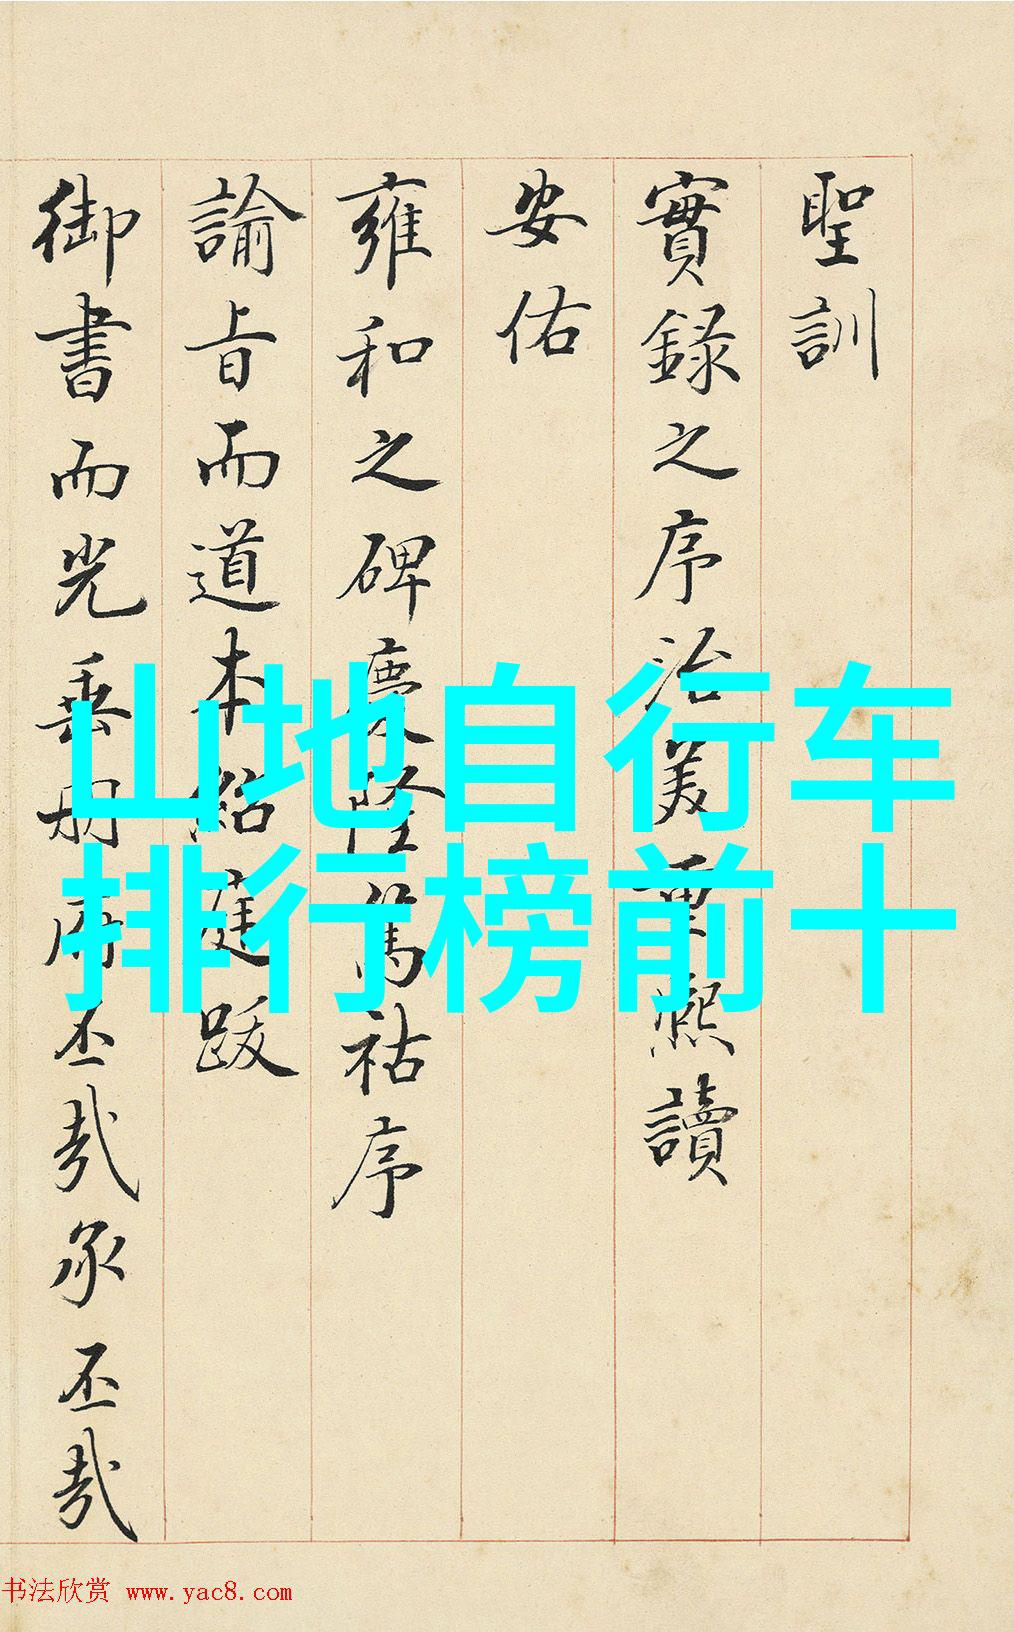 聖訓
實錄之序治美重熙讀
安佑
雍和之碑慶隆篤祜序
諭旨而道本紹庭跋
御書而光垂冊府丕哉承丕哉
山地自行车
排行榜前十
书法欣赏 www.yac8.com